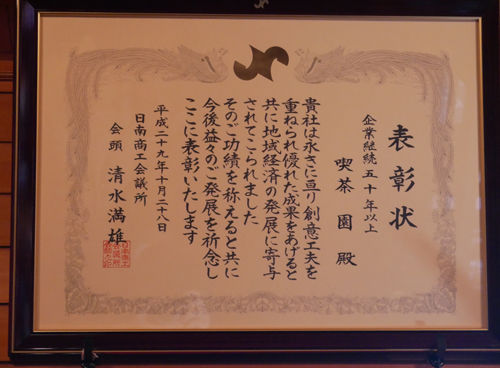 表彰状
企業継続五十年以上
喫茶園殿
貴社は永きに亘り創意工夫を
重ねられ優れた成果をあげると
共に地域経済の発展に寄与
されてこられました
そのご功績を称えると共に
今後益々のご発展を祈念し
ここに表彰いたします
平成二十九年十月二十八日
日南商工会議所
会頭 清水満雄